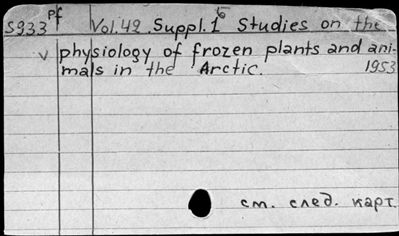 S933 pf Vol. 42. Suppl. 1 Studies on the
v physiology of frozen plants and ani-
mals in the Arctic. 1953
см. след. карт.